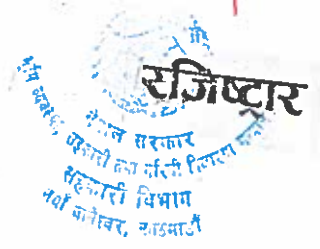 रजिष्ट्रार
नेपाल सरकार
सहकारी तथा गरिबी निवारण
सहकारी विभाग
नयाँ बानेश्वर, काठमाडौं